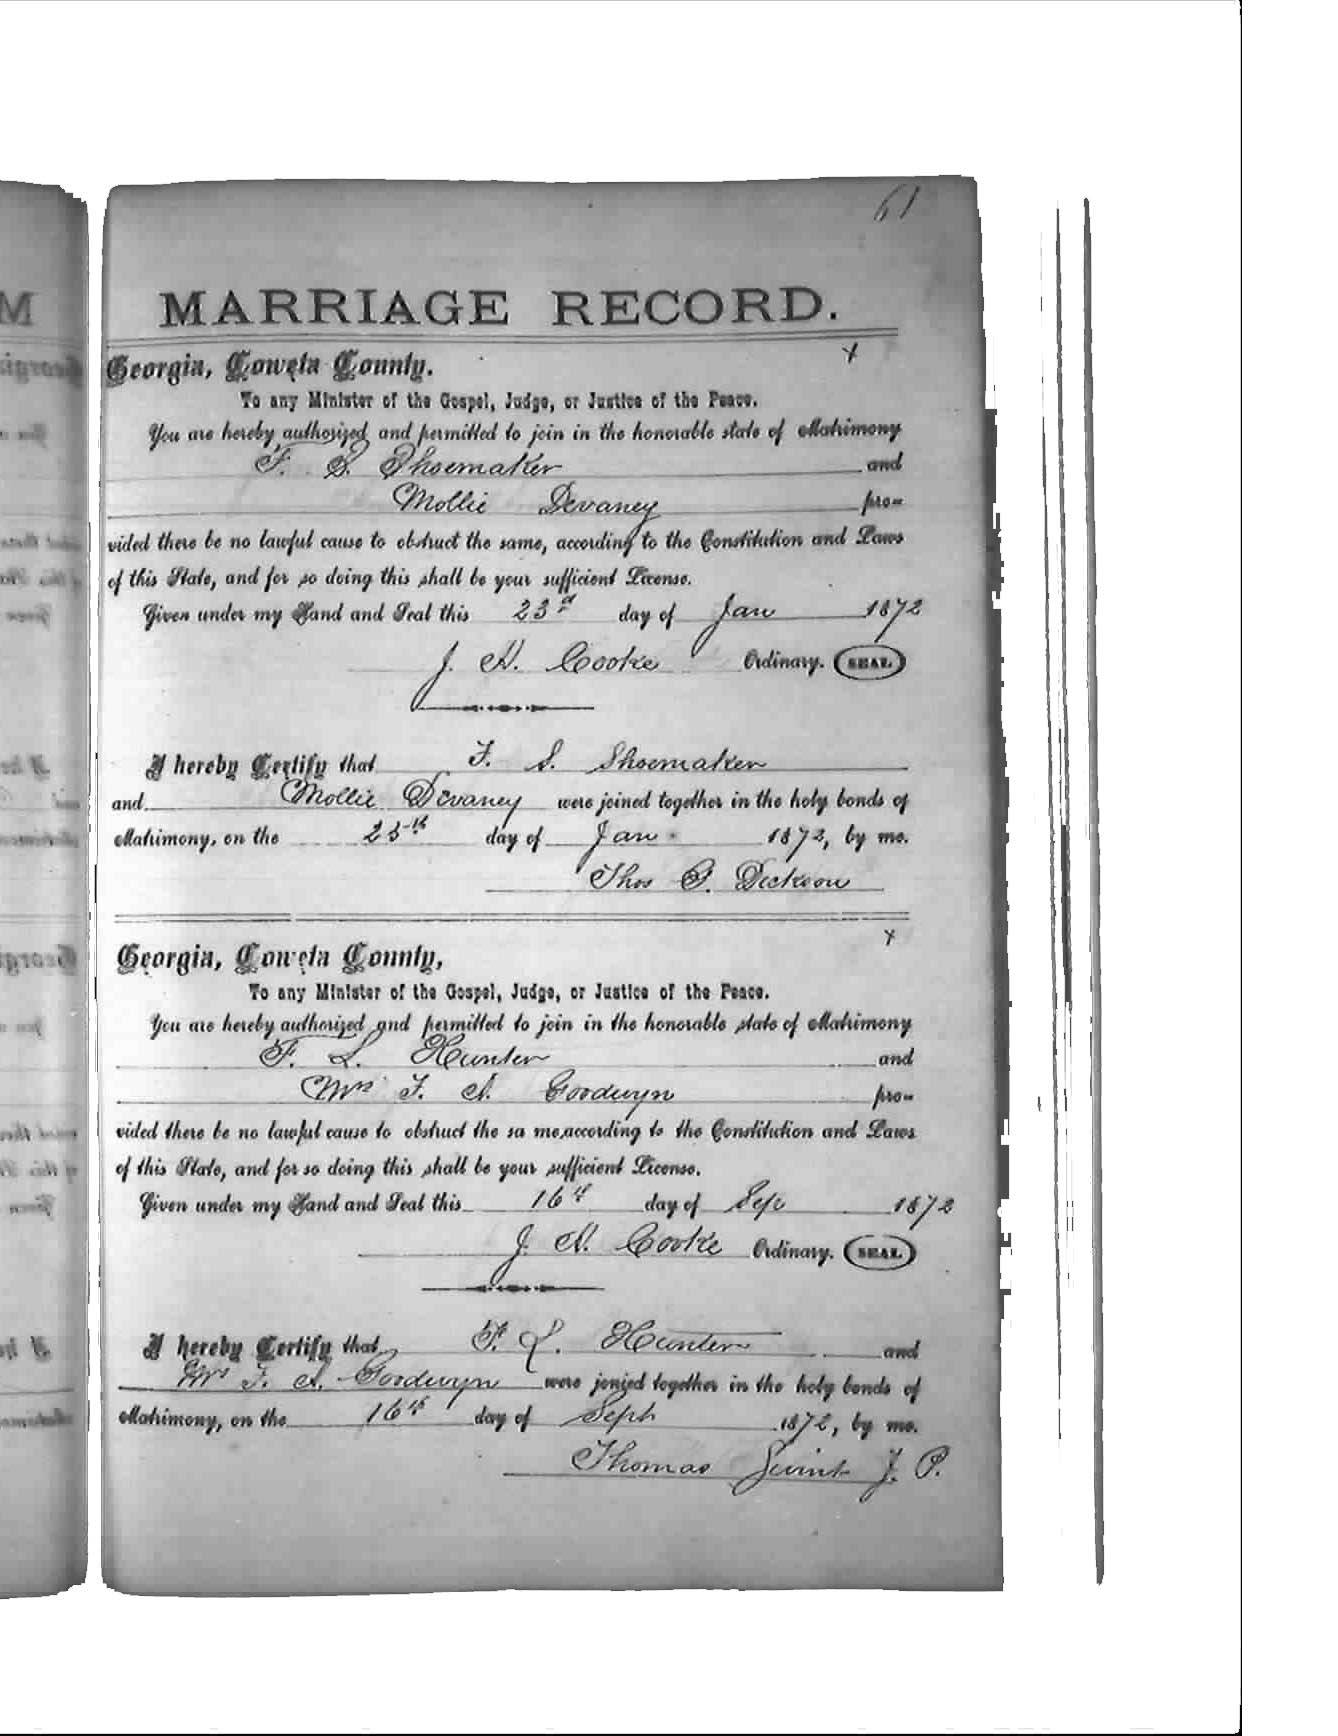 61
MARRIAGE RECORD.
Georgia, Coweta County.
To any Minister of the Gospel, Judge, or Justice of the Peace.
You are hereby authorized and permitted to join in the honorable state of Matrimony
F. S. Shoemaker and
Mollie Devaney pro=
vided there be no lawful cause to obstruct the same, according to the Constitution and Laws
of this State, and for so doing this shall be your sufficient License.
Given under my Hand and Seal this 23d day of Jan 1872
J. H. Cooke Ordinary. SEAL
I hereby Certify that F. S. Shoemaker
and Mollie Devaney were joined together in the holy bonds of
Matrimony, on the 25th day of Jan 1872, by me.
Thos G. Dickson
Georgia, Coweta County,
To any Minister of the Gospel, Judge, or Justice of the Peace.
You are hereby authorized and permitted to join in the honorable state of Matrimony
F. L. Hunter and
Mrs F. A. Goodwyn pro=
vided there be no lawful cause to obstruct the sa me,according to the Constitution and Laws
of this State, and for so doing this shall be your sufficient License.
Given under my Hand and Seal this 16th day of Sep 1872
J. H. Cooke Ordinary. SEAL
I hereby Certify that F. L. Hunter and
Mrs F. A. Goodwyn were jonied together in the holy bonds of
Matrimony, on the 16th day of Sept 1872, by me.
Thomas Swint J. P.